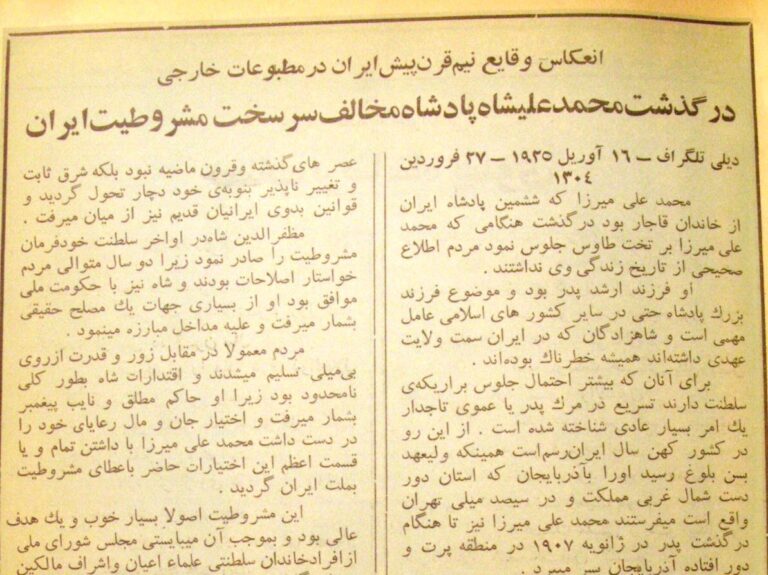 انعکاس وقایع نیم‌قرن پیش ایران در مطبوعات خارجی
درگذشت محمدعلیشاه پادشاه مخالف سرسخت مشروطیت ایران
دیلی تلگراف – ۱۶ آوریل ۱۹۲۵ – ۲۷ فروردین
۱۳۰٤
محمد علی میرزا که ششمین پادشاه ایران
از خاندان قاجار بود درگذشت هنگامی که محمد
علی میرزا بر تخت طاوس جلوس نمود مردم اطلاع
صحیحی از تاریخ زندگی وی نداشتند .
او فرزند ارشد پدر بود و موضوع فرزند
بزرك پادشاه حتی در سایر کشور های اسلامی عامل
مهمی است و شاهزادگان که در ایران سمت ولایت
عهدی داشته‌اند همیشه خطرناك بوده‌اند .
برای آنان که بیشتر احتمال جلوس براریکه‌ی
سلطنت دارند تسریع در مرك پدر یا عموی تاجدار
یك امر بسیار عادی شناخته شده است . از این رو
در کشور کهن سال ایران‌رسم‌است همینکه ولیعهد
بسن بلوغ رسید اورا بآذربایجان که استان دور
دست شمال غربی مملکت و در سیصد میلی تهران
واقع است میفرستند محمد علی میرزا نیز تا هنگام
درگذشت پدر در ژانویه ۱۹۰۷ در منطقه پرت و
دور افتاده آذربایجان بسر میبرد .
عصر های‌گذشته وقرون ماضیه نبود بلکه شرق ثابت
و تغییر ناپذیر بنوبه‌ی خود دچار تحول گردید و
قوانین بدوی ایرانیان قدیم نیز از میان میرفت .
مظفرالدین شاه‌در اواخر سلطنت خودفرمان
مشروطیت را صادر نمود زیرا دو سال متوالی مردم
خواستار اصلاحات بودند و شاه نیز با حکومت ملی
موافق بود او از بسیاری جهات یك مصلح حقیقی
بشمار میرفت و علیه مداخل مبارزه مینمود .
مردم معمولا در مقابل زور و قدرت ازروی
بی‌میلی تسلیم میشدند و اقتدارات شاه بطور کلی
نامحدود بود زیرا او حاکم مطلق و نایب پیغمبر
بشمار میرفت و اختیار جان و مال رعایای خود را
در دست داشت محمد علی میرزا با داشتن تمام و یا
قسمت اعظم این اختیارات حاضر باعطای مشروطیت
بملت ایران گردید .
این مشروطیت اصولا بسیار خوب و یك هدف
عالی بود و بموجب آن میبایستی مجلس شورای ملی
ازافرادخاندان سلطنتی علماء اعیان واشراف مالکین